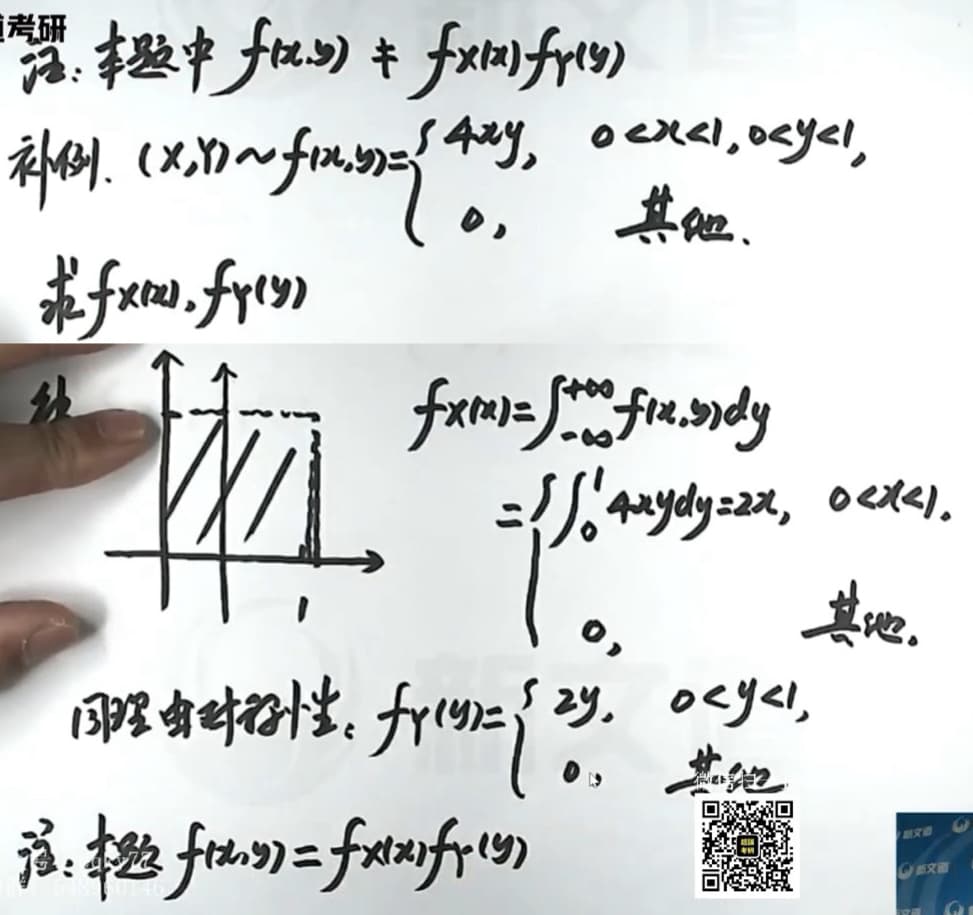 道考研
注：本题中 f(x,y) ≠ fX(x)fY(y)
补例. (X,Y)~f(x,y)={ 4xy, 0<x<1,0<y<1,
0, 其他.
求fX(x), fY(y)
fX(x)=∫_{-∞}^{+∞} f(x,y)dy
={ ∫_0^1 4xydy=2x, 0<x<1.
1
0, 其他.
同理由对称性: fY(y)={ 2y, 0<y<1,
0. 其他
微信扫一
注：本题 f(x,y)=fX(x)fY(y)
新文道
新文道